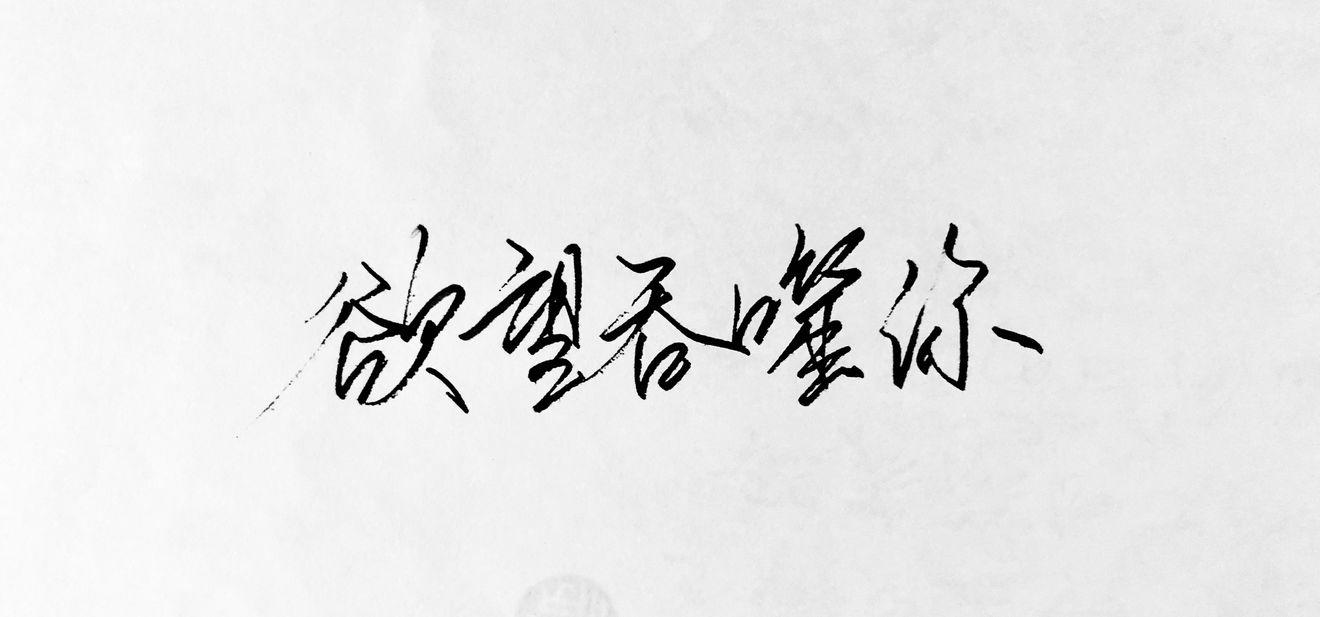 欲望吞噬你